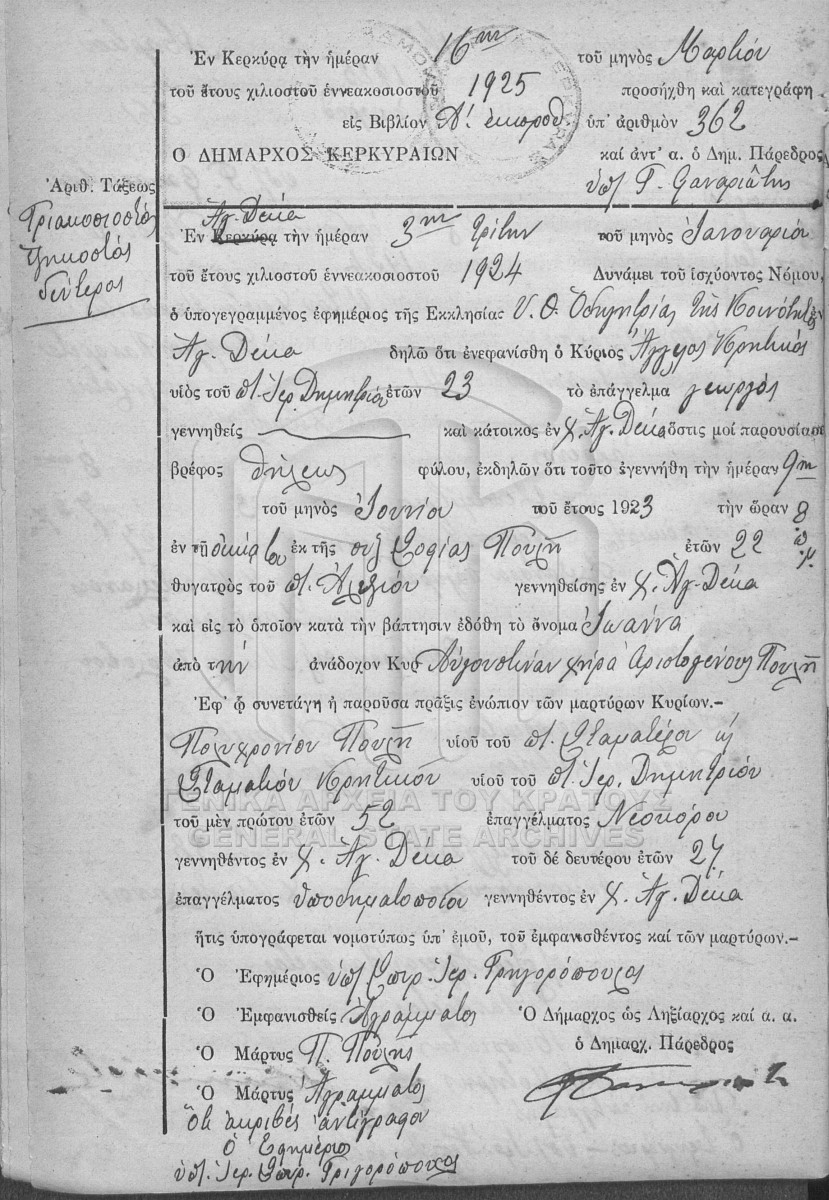 Ἐν Κερκύρᾳ τὴν ἡμέραν 16ην τοῦ μηνὸς Μαρτίου
τοῦ ἔτους χιλιοστοῦ ἐννεακοσιοστοῦ 1925 προσήχθη καὶ κατεγράφη
εἰς Βιβλίον Α΄. ἐκπροθ. ὑπ' ἀριθμὸν 362
Ο ΔΗΜΑΡΧΟΣ ΚΕΡΚΥΡΑΙΩΝ καί ἀντ' α. ὁ Δημ. Πάρεδρος
ὑπ/ Γ.
Ἀριθ. Τάξεως
Τριακοσιοστὸς
ἑξηκοστὸς
δεύτερος
Ἁγ. Δέκα
Ἐν Κερκύρᾳ τὴν ἡμέραν 3ην τρίτην τοῦ μηνὸς Ἰανουαρίου
τοῦ ἔτους χιλιοστοῦ ἐννεακοσιοστοῦ 1924 Δυνάμει τοῦ ἰσχύοντος Νόμου,
ὁ ὑπογεγραμμένος ἐφημέριος τῆς Εκκλησίας Υ. Θ. Ὁδηγητρίας τῆς Κοινότητος
Ἁγ. Δέκα δηλῶ ὅτι ἐνεφανίσθη ὁ Κύριος Ἄγγελος Κρητικὸς
υἱὸς τοῦ π. Ἱερ. Δημητρίου ἐτῶν 23 τὸ ἐπάγγελμα γεωργὸς
γεννηθεὶς καὶ κάτοικος ἐν χ. Ἁγ. Δέκα ὅστις μοί παρουσίασε
βρέφος θήλεως φύλου, ἐκδηλῶν ὅτι τοῦτο ἐγεννήθη τὴν ἡμέραν 9ην
τοῦ μηνὸς Ἰουνίου τοῦ ἔτους 1923 τὴν ὥραν 8 π. μ.
ἐν τῇ οἰκίᾳ του ἐκ τῆς συζ Σοφίας Πουλῆ ἐτῶν 22
θυγατρὸς τοῦ π. Ἀλεξίου γεννηθείσης ἐν χ. Ἁγ. Δέκα
καὶ εἰς τὸ ὁποῖον κατὰ τὴν βάπτησιν ἐδόθη τὸ ὄνομα Ἰωάννα
ἀπὸ τὴν ἀνάδοχον Κυρ Αὐγουστίναν χήρα Ἀριστογένους Πουλῆ
Ἐφ' ᾧ συνετάγη ἡ παροῦσα πρᾶξις ἐνώπιον τῶν μαρτύρων Κυρίων.—
Πολυχρονίου Πουλῆ υἱοῦ τοῦ π. Σταματέλου ἢ
Σταματίου Κρητικοῦ υἱοῦ τοῦ π. Ἱερ. Δημητρίου
τοῦ μὲν πρώτου ἐτῶν 52 ἐπαγγέλματος Νεοκόρου
γεννηθέντος ἐν χ. Ἁγ. Δέκα τοῦ δέ δευτέρου ἐτῶν 27
ἐπαγγέλματος ὑποδηματοποιοῦ γεννηθέντος ἐν χ. Ἁγ. Δέκα
ἥτις ὑπογράφεται νομοτύπως ὑπ' ἐμοῦ, τοῦ ἐμφανισθέντος καί τῶν μαρτύρων.—
Ὁ Ἐφημέριος ὑπ/ Σπυρ. Ἱερ. Γρηγορόπουλος
Ὁ Ἐμφανισθεὶς Ἀγράμματος Ὁ Δήμαρχος ὡς Ληξίαρχος καί α. α.
Ὁ Μάρτυς Π. Πουλῆς ὁ Δημαρχ. Πάρεδρος
Ὁ Μάρτυς Ἀγράμματος
Ὅτι ἀκριβὲς ἀντίγραφον
ὁ Ἐφημέριος
ὑπ/. Ἱερ. Σπυρ. Γρηγορόπουλος
ΓΕΝΙΚΑ ΑΡΧΕΙΑ ΤΟΥ ΚΡΑΤΟΥΣ
GENERAL STATE ARCHIVES